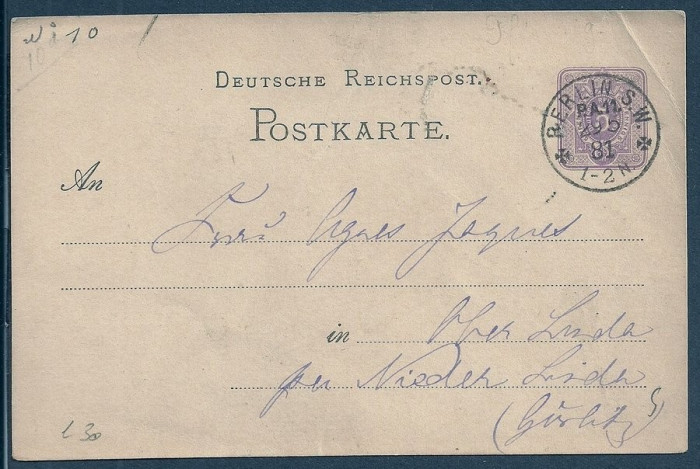 N i 10
DEUTSCHE REICHSPOST.
POSTKARTE.
BERLIN S.W.
P.A.11.
29 5
81
1-2 N
5
An
Frau Agnes Jaques
in Ober Linda
per Nieder Linda
(Görlitz)
L 30